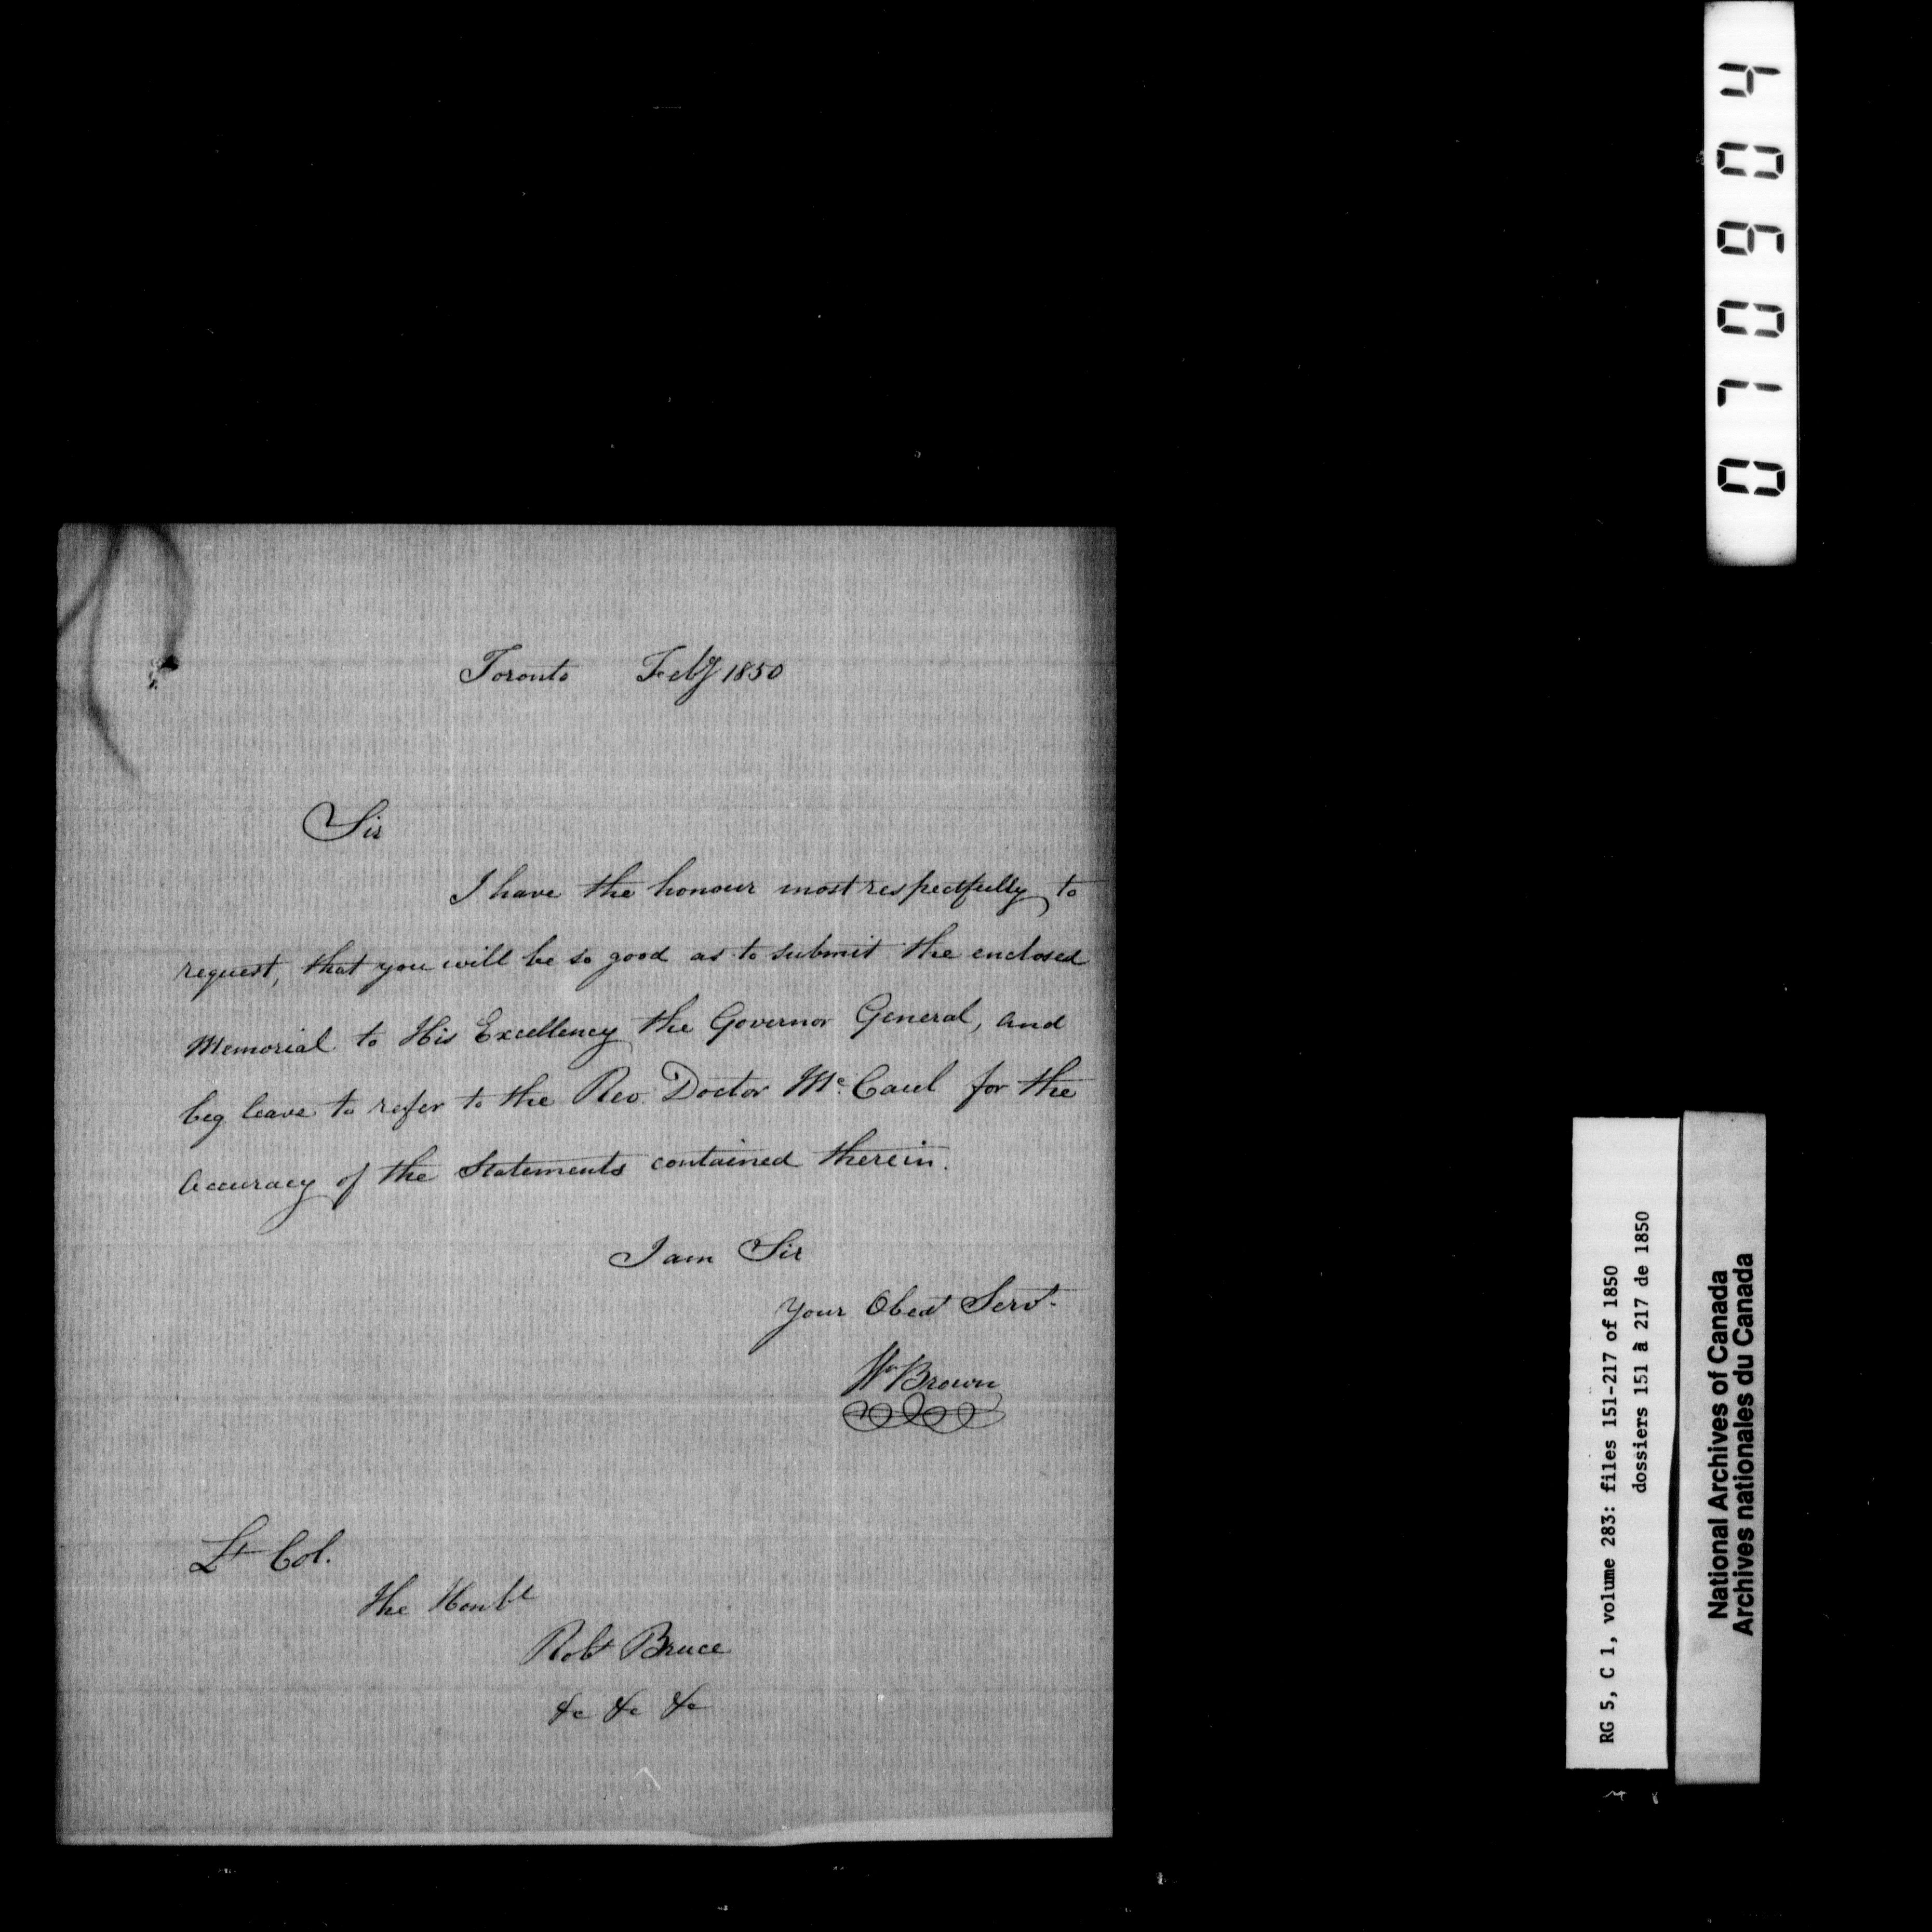 Toronto Feby 1850
Sir
I have the honour most respectfully to
request, that you will be so good as to submit the enclosed
Memorial to His Excellency the Governor General, and
beg leave to refer to the Rev. Doctor Mc.Caul for the
Accuracy of the Statements contained therein.
I am Sir
Your Obedt Servt.
Wm Brown
Lt Col.
The Honble
Robt Bruce
&c &c &c
070904
RG 5, C 1, volume 283: files 151-217 of 1850
dossiers 151 à 217 de 1850
National Archives of Canada
Archives nationales du Canada